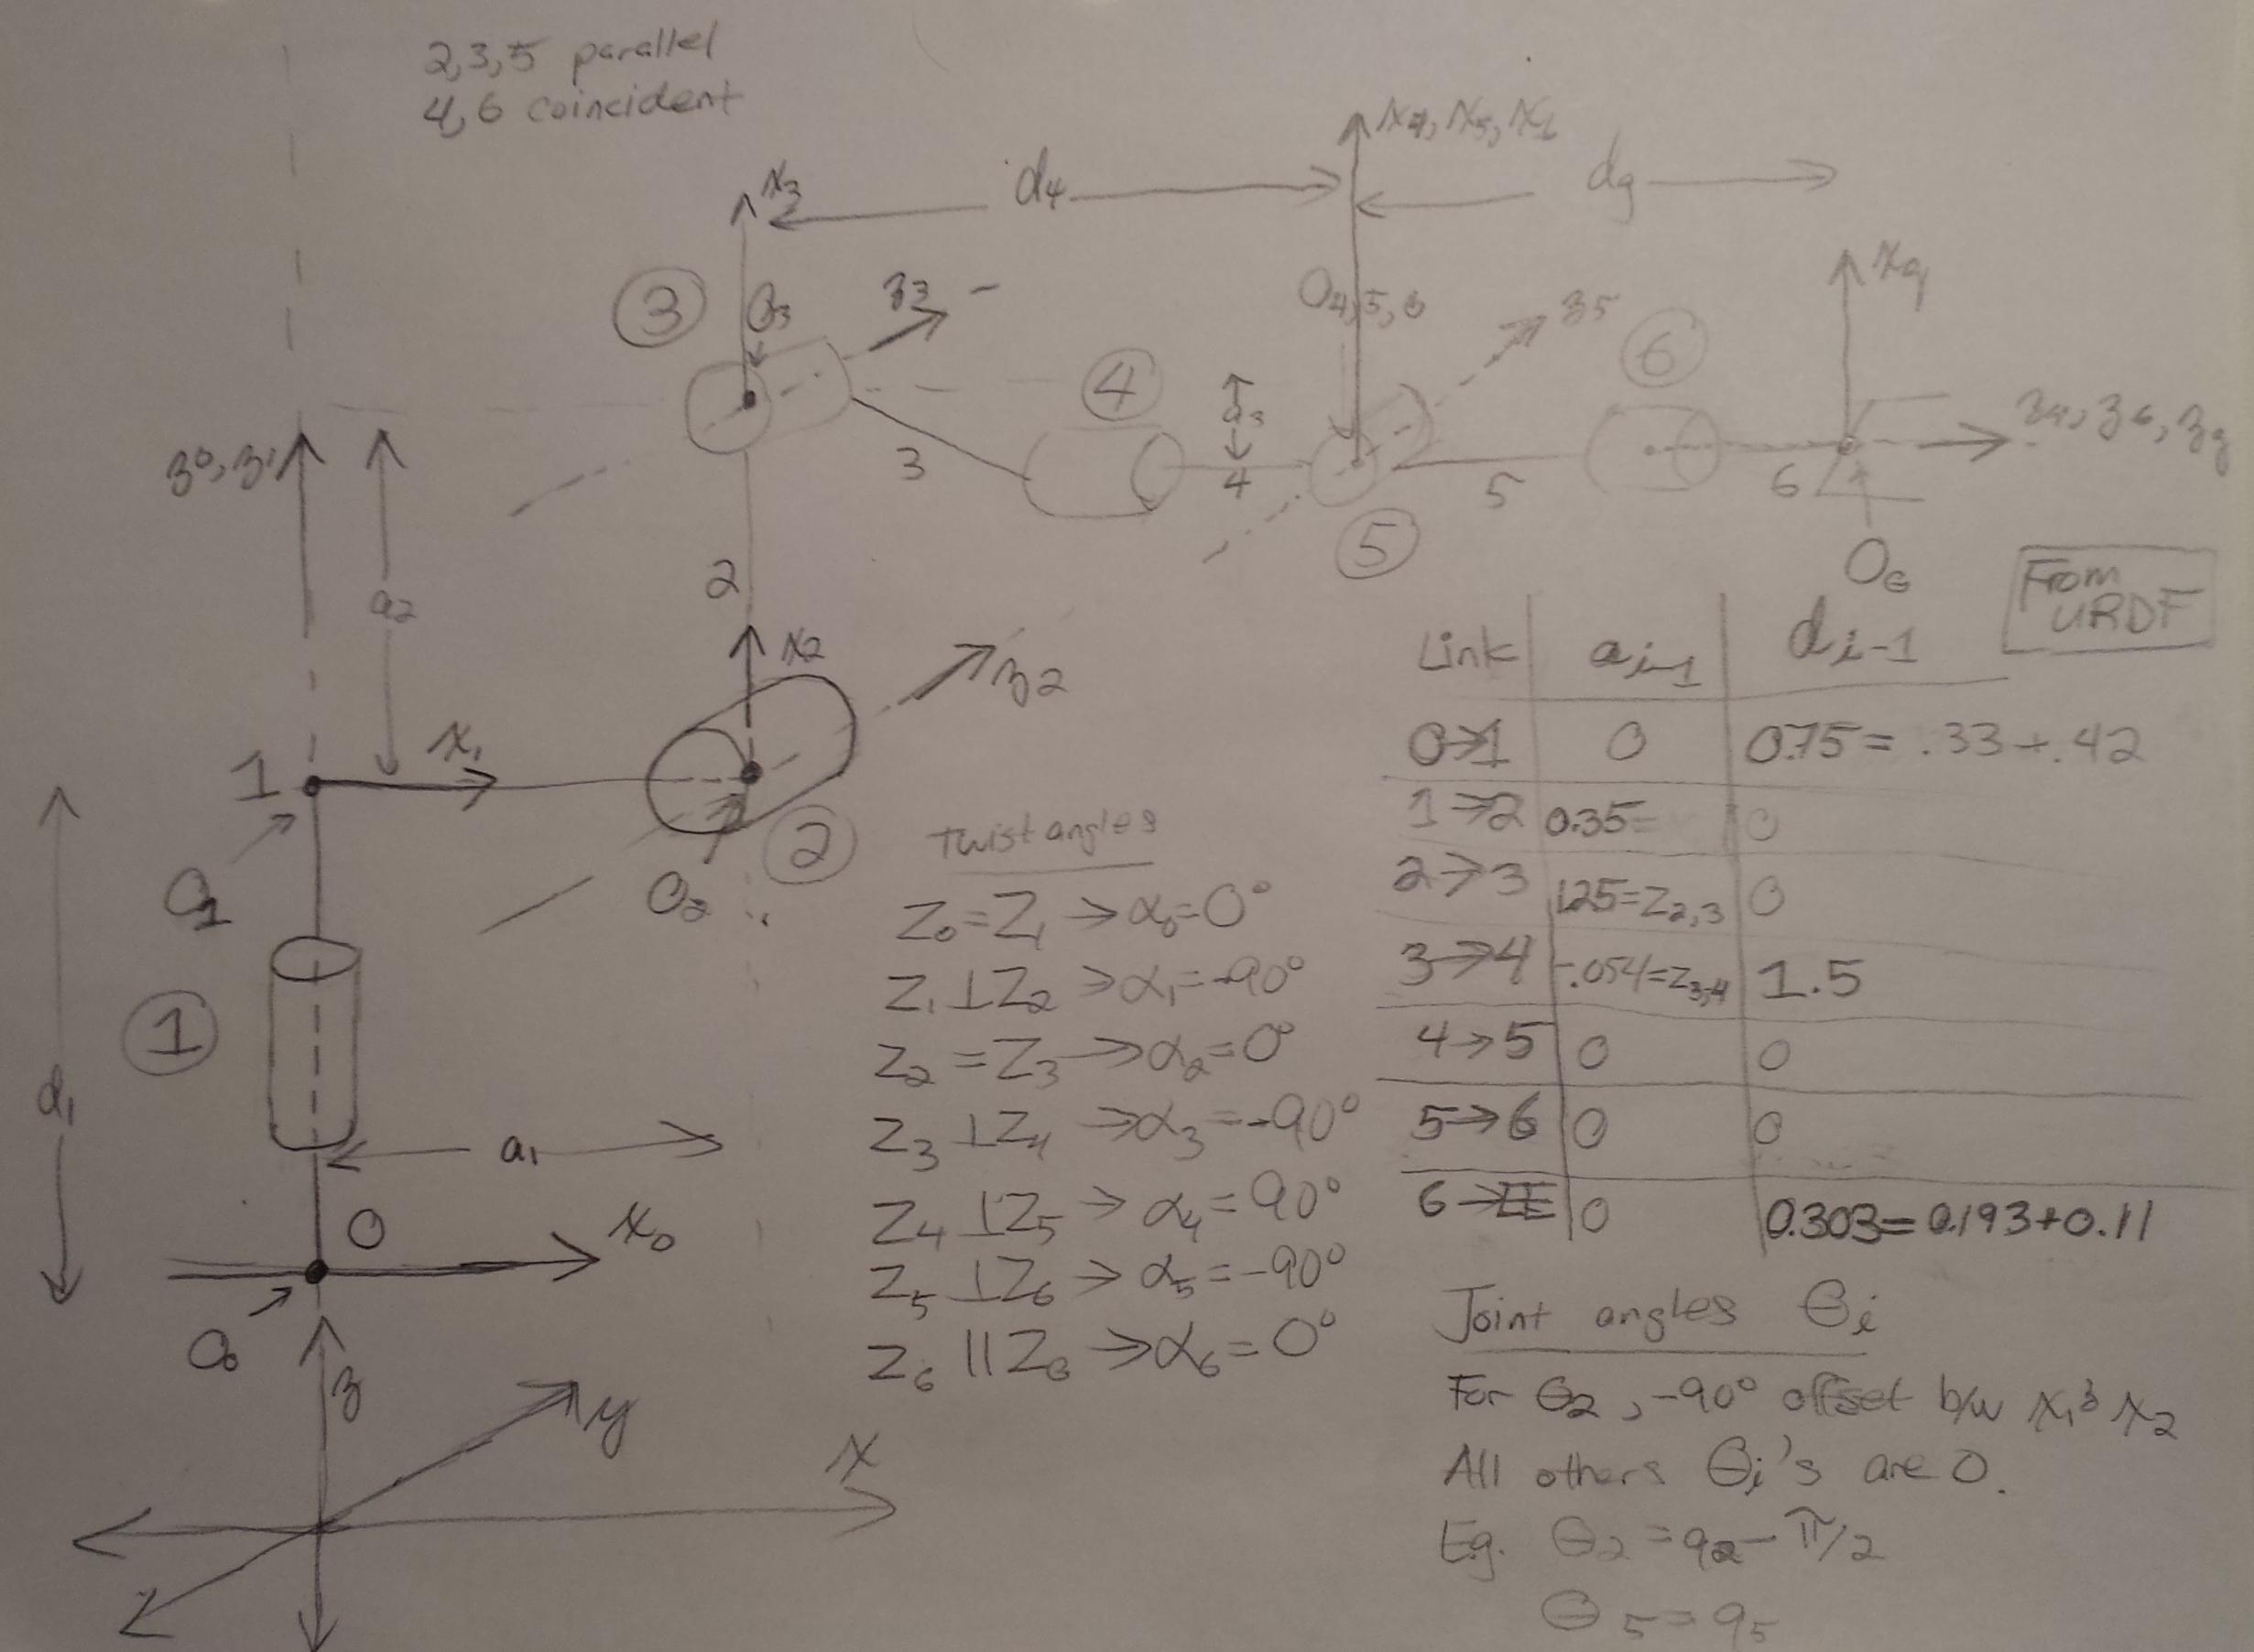 2,3,5 parallel
4,6 coincident
x3
d4
x4, x5, x6
dg
3
O3
z3
O4,5,6
z5
6
xg
4
a3
z0, z1
a2
3
4
5
6
z4, z6, zg
5
OG
2
x2
z2
1
x1
O1
O2
2
1
d1
a1
0
x0
O0
z
y
x
Twist angles
Z0 = Z1 → α0 = 0°
Z1 ⊥ Z2 → α1 = -90°
Z2 = Z3 → α2 = 0°
Z3 ⊥ Z4 → α3 = -90°
Z4 ⊥ Z5 → α4 = 90°
Z5 ⊥ Z6 → α5 = -90°
Z6 || ZG → α6 = 0°
From
URDF
Link ai-1 di-1
0→1 0 0.75 = .33 + .42
1→2 0.35= 0
2→3 1.25=Z2,3 0
3→4 -.054=Z3,4 1.5
4→5 0 0
5→6 0 0
6→EE 0 0.303 = 0.193+0.11
Joint angles θi
For θ2, -90° offset b/w x1 & x2
All others θi's are 0.
Eg. θ2 = q2 - π/2
θ5 = q5